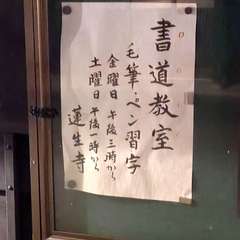 書道教室
毛筆・ペン習字
金曜日 午後三時から
土曜日 午後一時から
蓮生寺